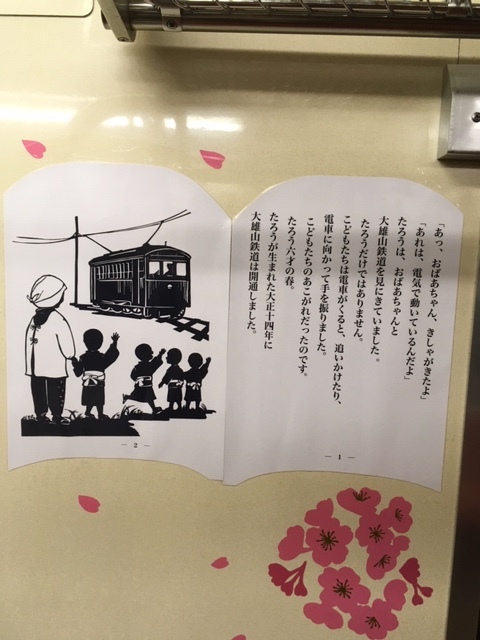 「あっ、おばあちゃん、きしゃがきたよ」
「あれは、電気で動いているんだよ」
たろうは、おばあちゃんと
大雄山鉄道を見にきていました。
たろうだけではありません。
こどもたちは電車がくると、追いかけたり、
電車に向かって手を振りました。
こどもたちのあこがれだったのです。
たろう六才の春。
たろうが生まれた大正十四年に
大雄山鉄道は開通しました。
― 1 ―
― 2 ―